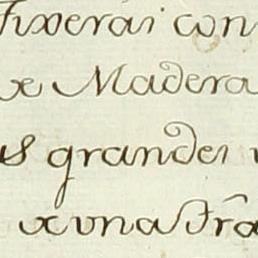 Tixerai con
e Madera
s grandes
x una Fra